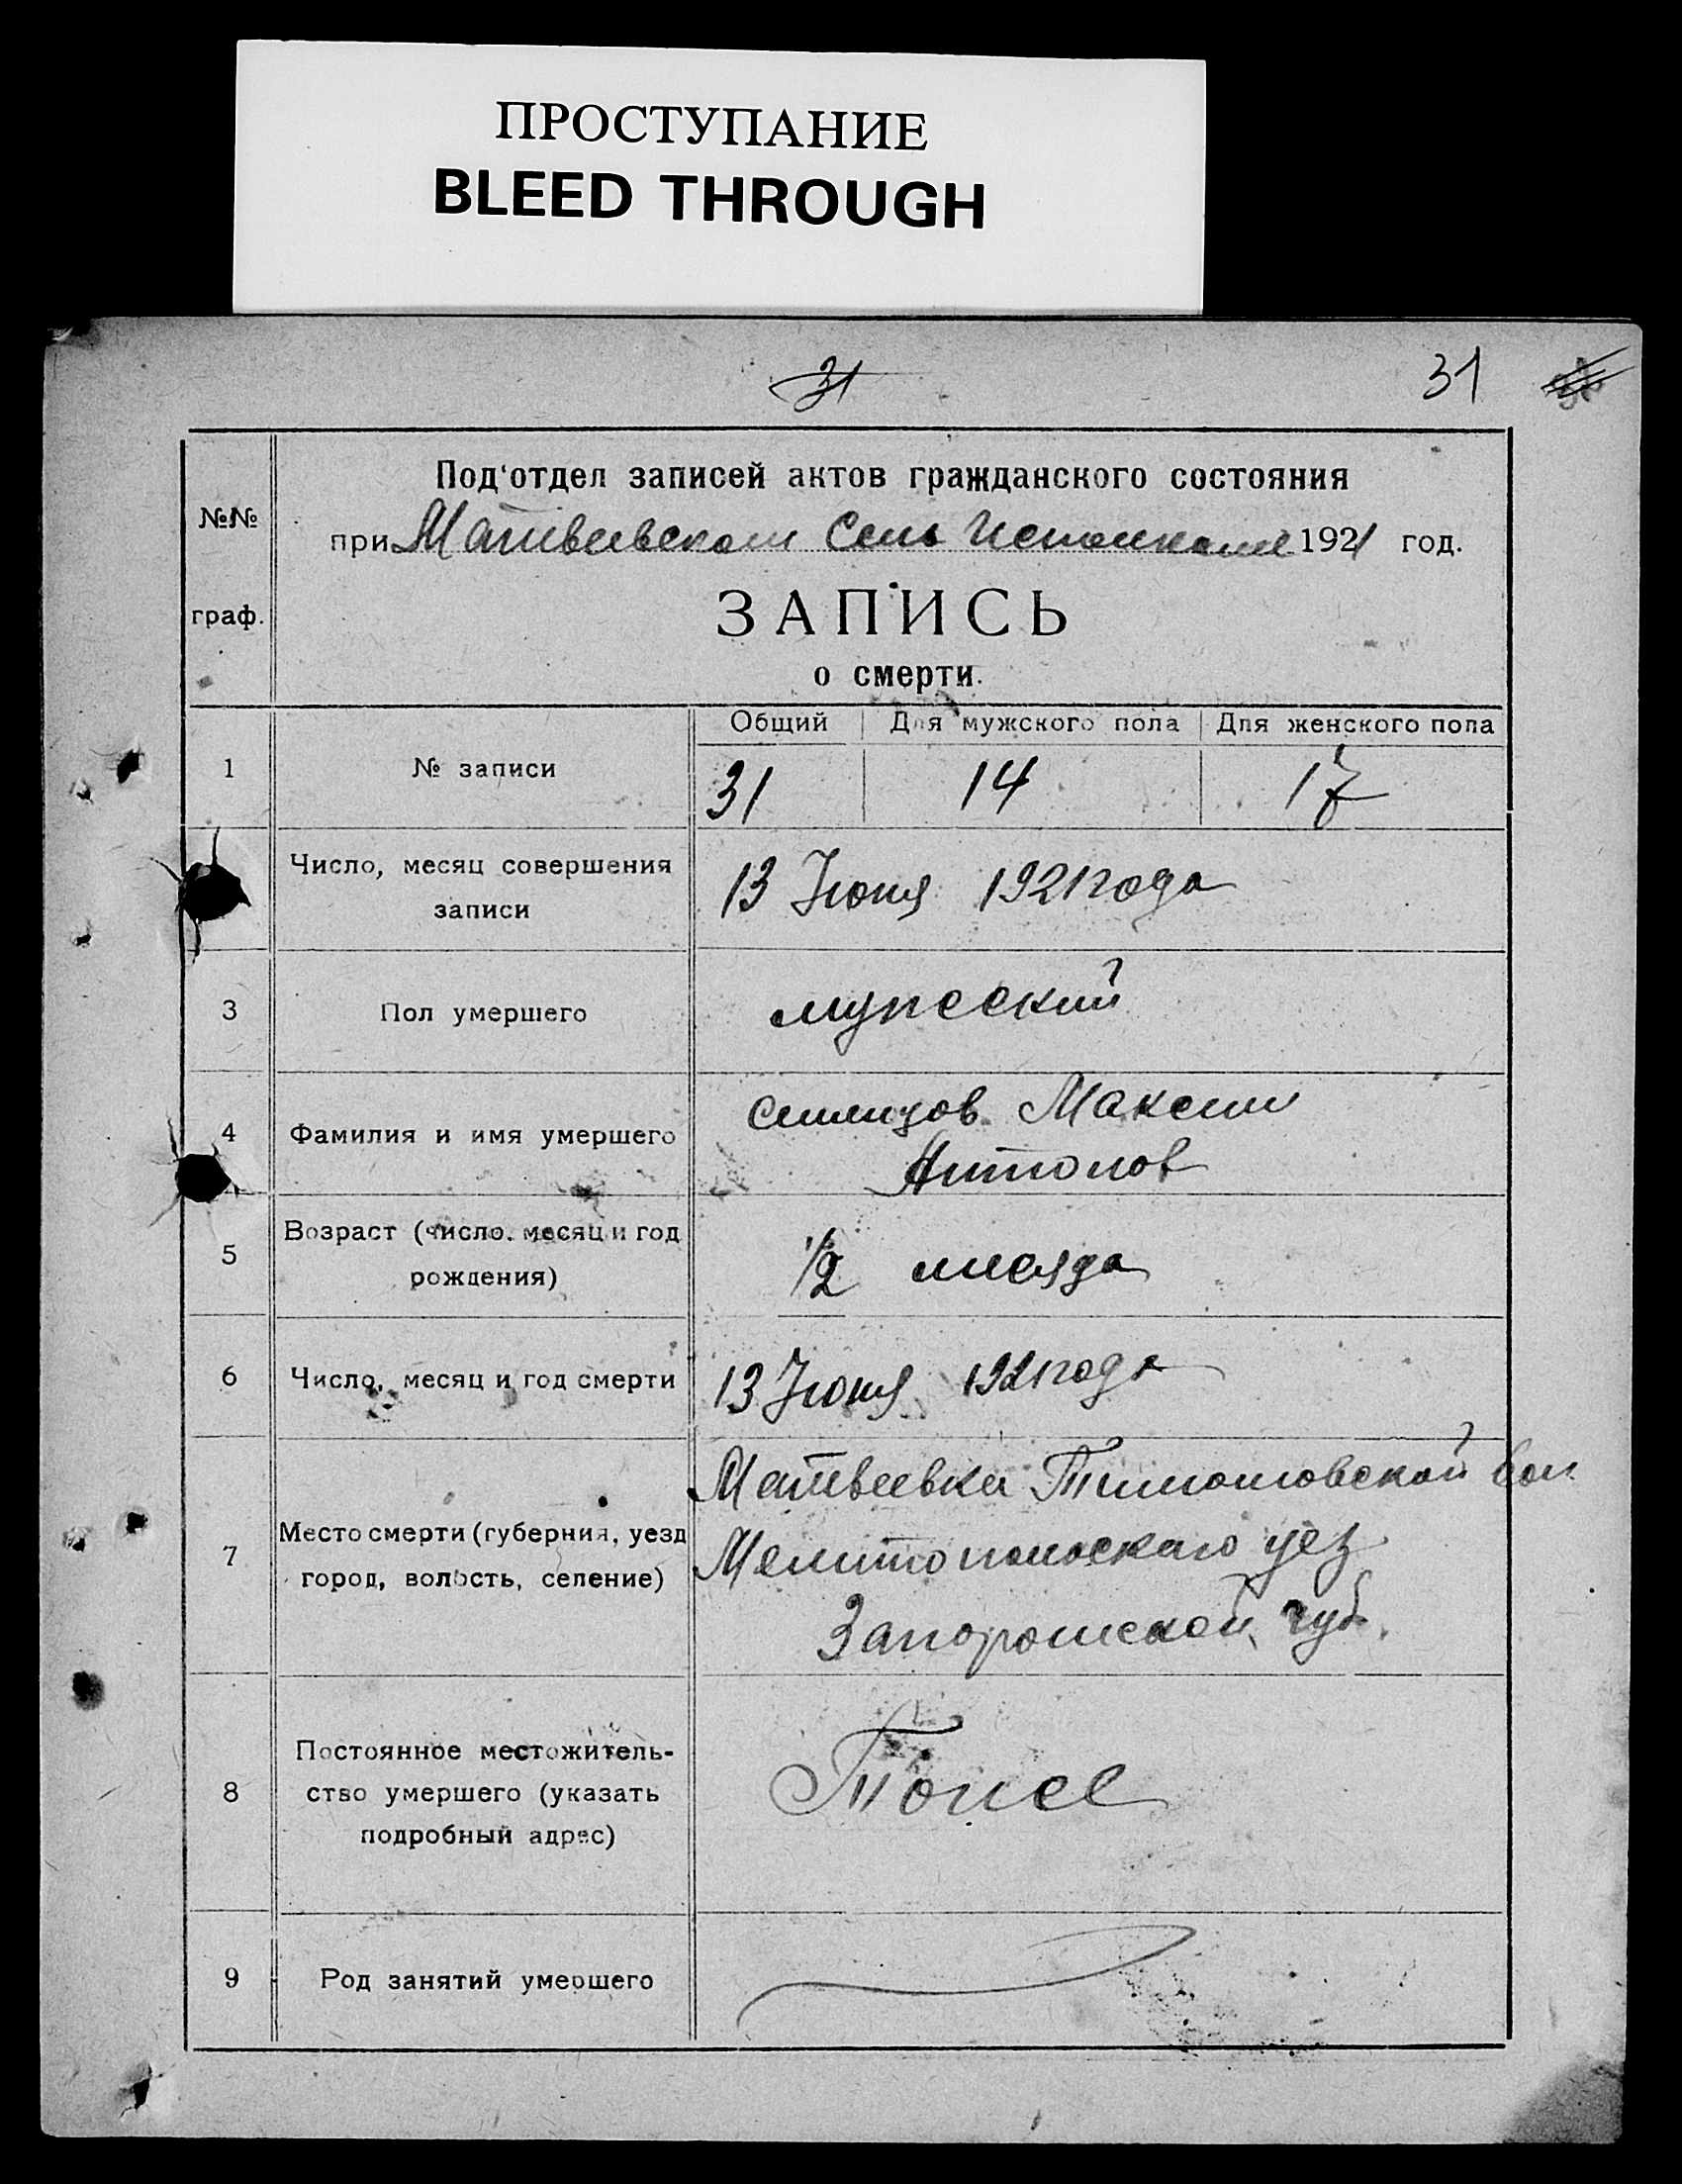 ПРОСТУПАНИЕ
BLEED THROUGH
31
31
Под'отдел записей актов гражданского состояния
№№ граф.
при Матвеевском Сель Исполкоме 1921 год.
ЗАПИСЬ
о смерти.
Общий Для мужского пола Для женского пола
1 № записи 31 14 17
Число, месяц совершения
записи
13 Июня 1921 года
3 Пол умершего мужеский
4 Фамилия и имя умершего
Максим
Антонов
5 Возраст (число, месяц и год
рождения)
1/2 месяца
6 Число, месяц и год смерти 13 Июня 1921 года
7 Место смерти (губерния, уезд
город, волость, селение)
Матвеевка Тимошовской вол
Мелитопольскаго уез
Запорожской губ.
8 Постоянное местожитель-
ство умершего (указать
подробный адрес)
Тоже
9 Род занятий умершего